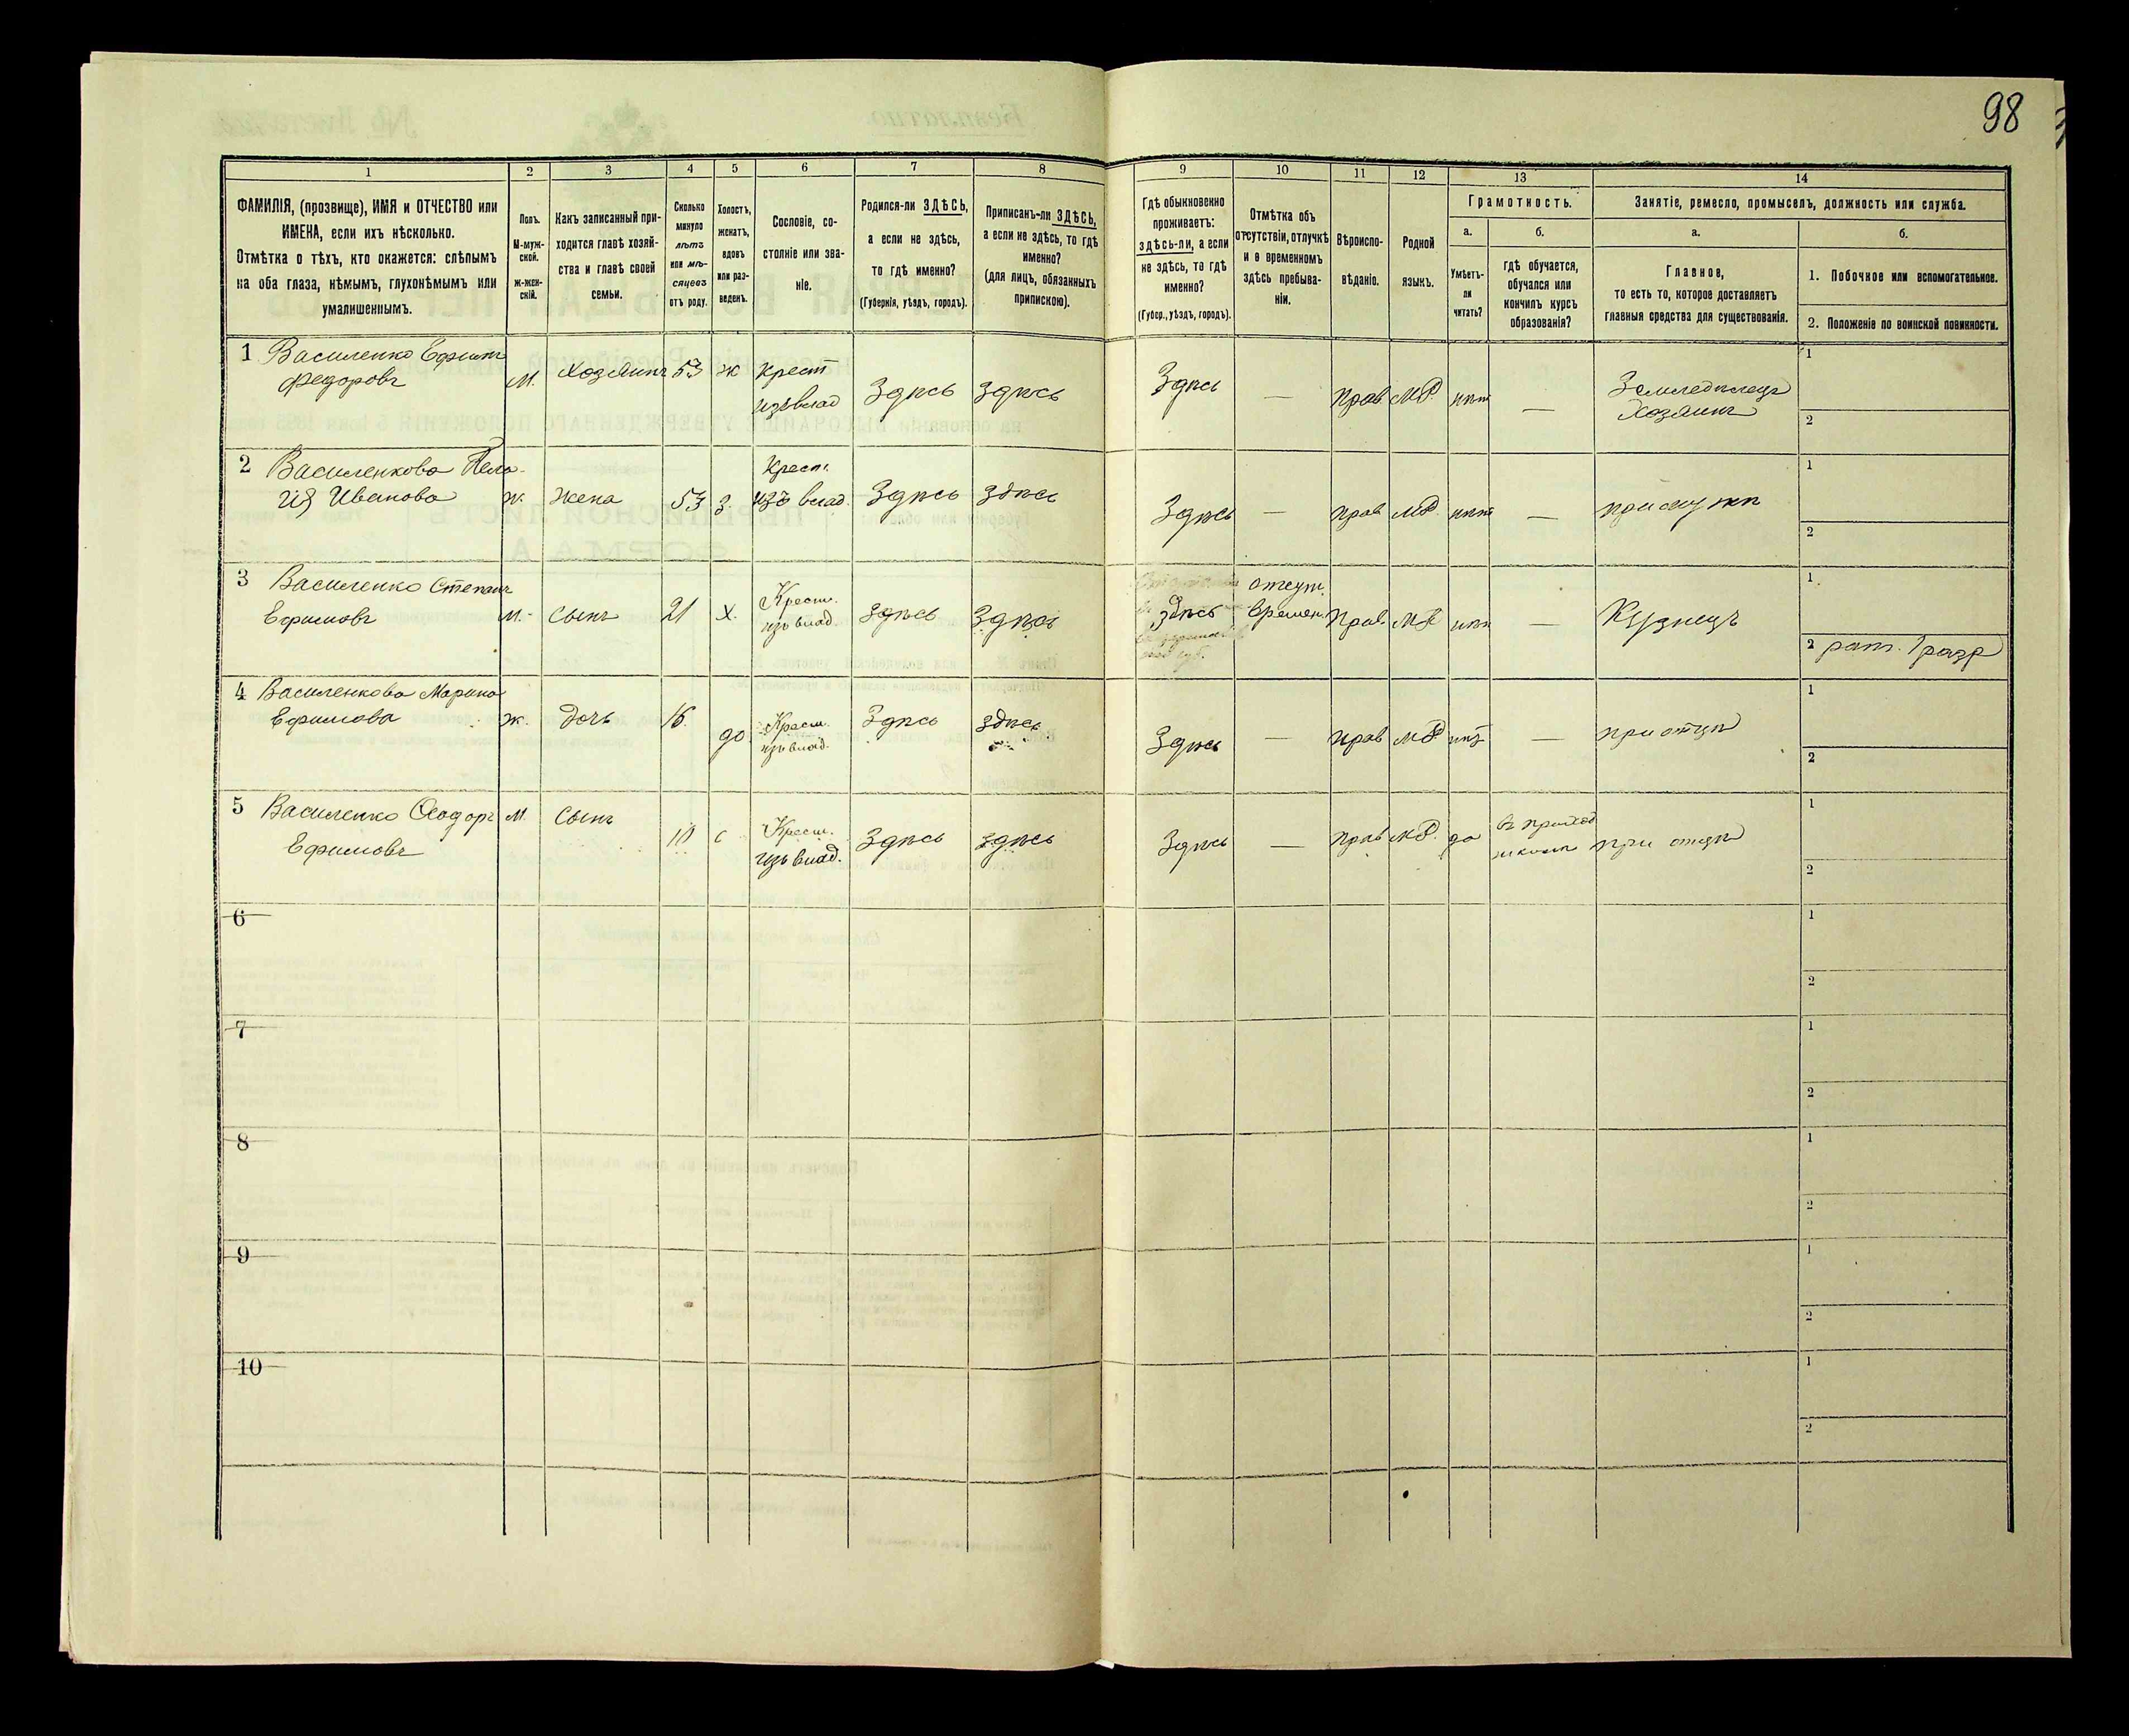 98
1 2 3 4 5 6 7 8 9 10 11 12 13 14
ФАМИЛІЯ, (прозвище), ИМЯ и ОТЧЕСТВО или
ИМЕНА, если ихъ нѣсколько.
Отмѣтка о тѣхъ, кто окажется: слѣпымъ
на оба глаза, нѣмымъ, глухонѣмымъ или
умалишеннымъ.
Полъ.
М-муж-
ской.
Ж-жен-
скій.
Какъ записанный при-
ходится главѣ хозяй-
ства и главѣ своей
семьи.
Сколько
минуло
лѣтъ
или мѣ-
сяцевъ
отъ роду.
Холостъ,
женатъ,
вдовъ
или раз-
веденъ.
Сословіе, со-
стояніе или зва-
ніе.
Родился-ли ЗДѢСЬ,
а если не здѣсь,
то гдѣ именно?
(Губернія, уѣздъ, городъ).
Приписанъ-ли ЗДѢСЬ,
а если не здѣсь, то гдѣ
именно?
(для лицъ, обязанныхъ
припискою).
Гдѣ обыкновенно
проживаетъ:
здѣсь-ли, а если
не здѣсь, то гдѣ
именно?
(Губер., уѣздъ, городъ).
Отмѣтка объ
отсутствіи, отлучкѣ
и о временномъ
здѣсь пребыва-
ніи.
Вѣроиспо-
вѣданіе.
Родной
языкъ.
Грамотность.
а.
Умѣетъ-
ли
читать?
б.
гдѣ обучается,
обучался или
кончилъ курсъ
образованія?
Занятіе, ремесло, промыселъ, должность или служба.
а.
Главное,
то есть то, которое доставляетъ
главныя средства для существованія.
б.
1. Побочное или вспомогательное.
2. Положеніе по воинской повинности.
1 Василенко Ефимъ
Федоровъ
М. Хозяинъ 53 ж Крест
изъ влад Здѣсь Здѣсь Здѣсь — Прав М.Р. нѣт — Земледѣлецъ
Хозяинъ
1
2
2 Василенкова Пела-
гія Иванова
ж. жена 53 з. Крест.
изъ влад. Здѣсь здѣсь Здѣсь — прав М.Р. нѣт — при мужѣ
1
2
3 Василенко Степанъ
Ефимовъ
М. сынъ 21 х. Крест.
изъ влад. здѣсь Здѣсь здѣсь отсут.
времен. Прав. М.Р. — Кузнецъ
1
2 рат. 1 разр
4 Василенкова Марина
Ефимова
ж. дочь 16. Крест.
изъ влад. Здѣсь здѣсь Здѣсь — прав М.Р. нѣт — при отцѣ
1
2
5 Василенко Ѳеодоръ
Ефимовъ
М сынъ 10 Крест.
изъ влад. Здѣсь здѣсь Здѣсь — прав М.Р. да въ приход
школѣ при отцѣ
1
2
6
1
2
7
1
2
8
1
2
9
1
2
10
1
2